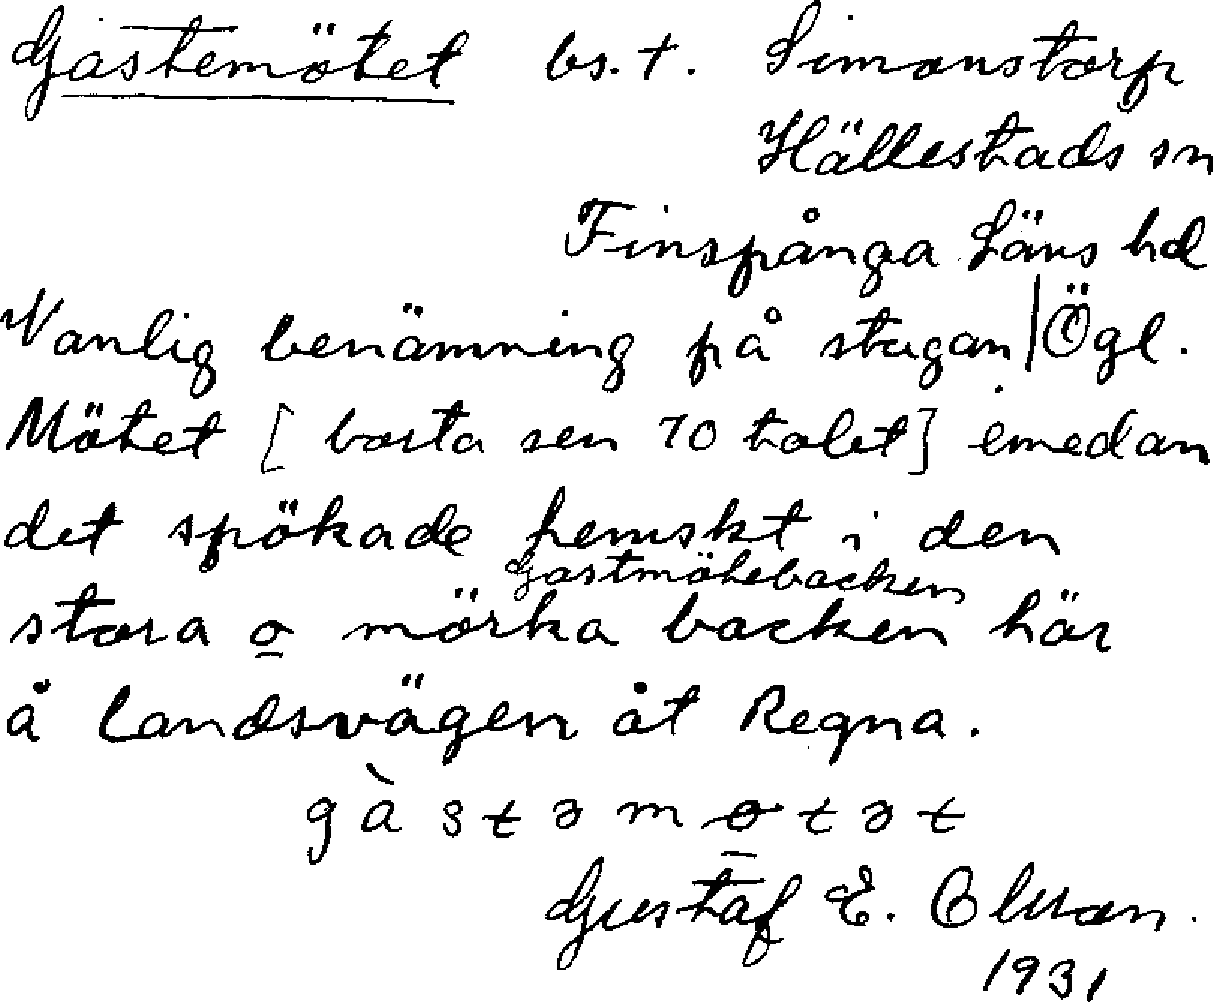 Gastemötet bs. t. Simonstorp
Hällestads sn
Finspånga Läns hd
Vanlig benämning på stugan | Ögl.
Mötet [borta sen 70 talet] emedan
det spökade hemskt i den
Gastmötebacken
stora o mörka backen här
å landsvägen åt Regna.
gàstəmøtət
Gustaf E. Olsson.
1931